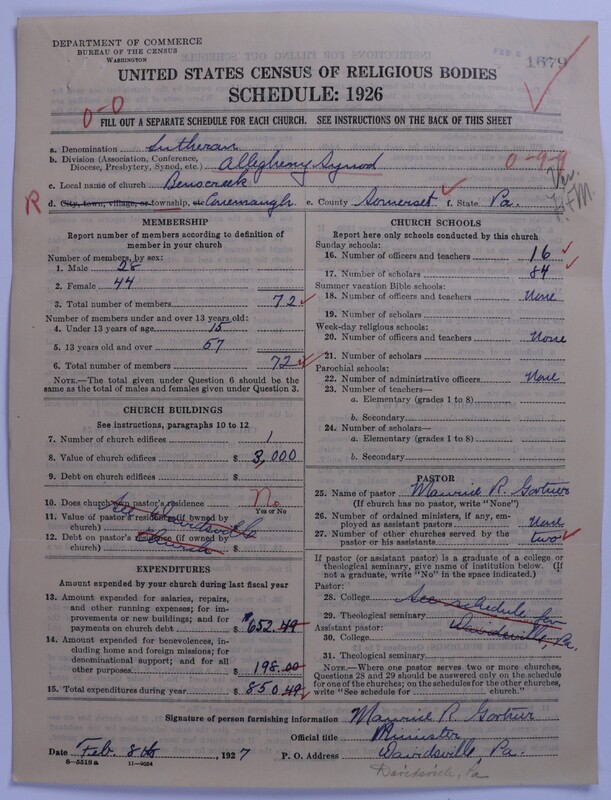 DEPARTMENT OF COMMERCE
BUREAU OF THE CENSUS
WASHINGTON
1679
UNITED STATES CENSUS OF RELIGIOUS BODIES
SCHEDULE: 1926
0-0
FILL OUT A SEPARATE SCHEDULE FOR EACH CHURCH. SEE INSTRUCTIONS ON THE BACK OF THIS SHEET
a. Denomination Lutheran
b. Division (Association, Conference, Diocese, Presbytery, Synod, etc.) Allegheny Synod 0-9-9
c. Local name of church Benscreek
Ver. H.F.M.
R d. City, town, village, or township, Conemaugh e. County Somerset f. State Pa.
MEMBERSHIP
Report number of members according to definition of member in your church
Number of members, by sex:
1. Male 28
2. Female 44
3. Total number of members 72
Number of members under and over 13 years old:
4. Under 13 years of age 15
5. 13 years old and over 57
6. Total number of members 72
NOTE.—The total given under Question 6 should be the same as the total of males and females given under Question 3.
CHURCH BUILDINGS
See instructions, paragraphs 10 to 12
7. Number of church edifices 1
8. Value of church edifices $ 3,000
9. Debt on church edifices $
10. Does church own pastor's residence No
Yes or No
11. Value of pastor's residence (if owned by church) $
12. Debt on pastor's residence (if owned by church) $
See Davidsville Church
EXPENDITURES
Amount expended by your church during last fiscal year
13. Amount expended for salaries, repairs, and other running expenses; for improvements or new buildings; and for payments on church debt $ 652.49
14. Amount expended for benevolences, including home and foreign missions; for denominational support; and for all other purposes $ 198.00
15. Total expenditures during year $ 850.49
CHURCH SCHOOLS
Report here only schools conducted by this church
Sunday schools:
16. Number of officers and teachers 16
17. Number of scholars 84
Summer vacation Bible schools:
18. Number of officers and teachers None
19. Number of scholars
Week-day religious schools:
20. Number of officers and teachers None
21. Number of scholars
Parochial schools:
22. Number of administrative officers None
23. Number of teachers—
a. Elementary (grades 1 to 8)
b. Secondary
24. Number of scholars—
a. Elementary (grades 1 to 8)
b. Secondary
PASTOR
25. Name of pastor Maurice R. Gortner
(If church has no pastor, write "None")
26. Number of ordained ministers, if any, employed as assistant pastors None
27. Number of other churches served by the pastor or his assistants two
If pastor (or assistant pastor) is a graduate of a college or theological seminary, give name of institution below. (If not a graduate, write "No" in the space indicated.)
Pastor:
28. College See schedule for
29. Theological seminary Davidsville, Pa.
Assistant pastor:
30. College
31. Theological seminary
NOTE.—Where one pastor serves two or more churches, Questions 28 and 29 should be answered only on the schedule for one of the churches; on the schedules for the other churches, write "See schedule for ______ church."
Signature of person furnishing information Maurice R. Gortner
Official title Minister
Date Feb. 8th, 1927 P. O. Address Davidsville, Pa.
8—5518a 11—9034
Davidsville, Pa